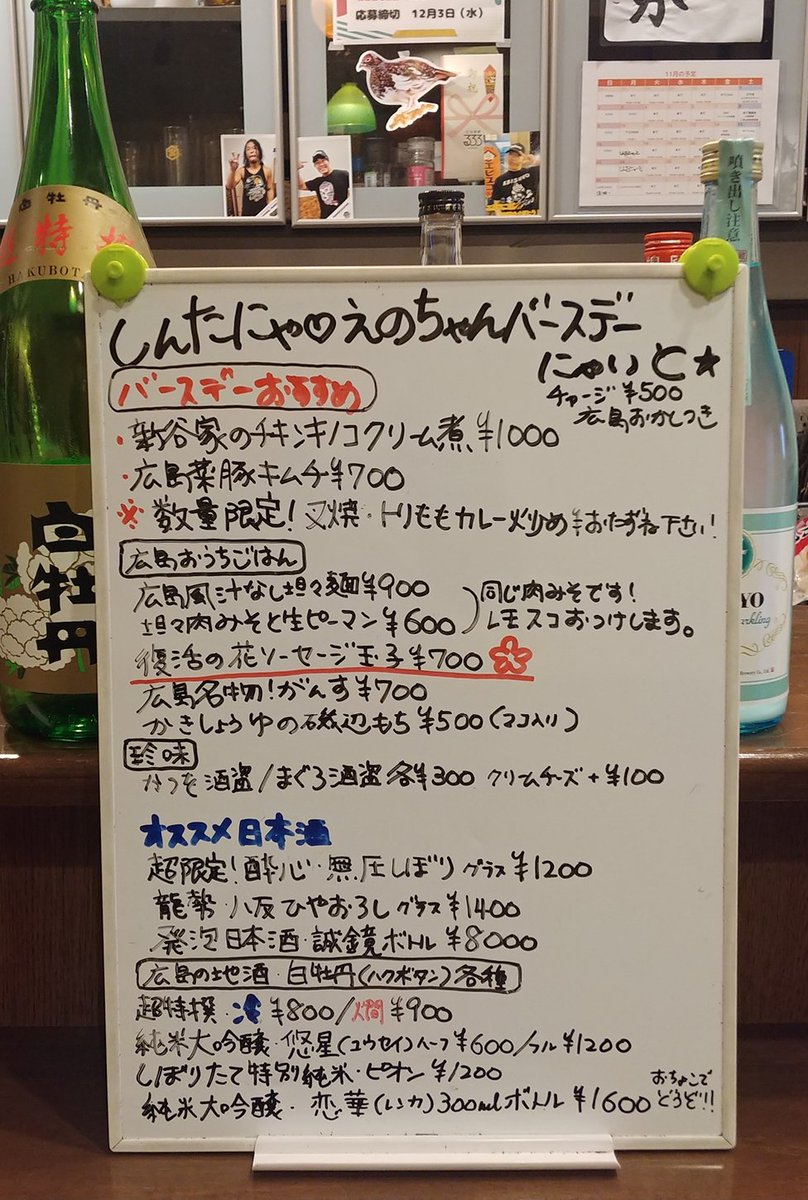 応募締切 12月3日（水）
11月の予定
日 月 火 水 木 金 土
御祝
噴き出し注意
白牡丹
HAKUBOTA
白牡丹
YO
arkling
しんたにゃ♡えのちゃんバースデー
にゃいと★
チャージ¥500
広島おかしつき
バースデーおすすめ
・新谷家のチキンキノコクリーム煮¥1000
・広島菜豚キムチ¥700
※数量限定！叉焼・トリももカレー炒め¥おたずね下さい！
広島おうちごはん
広島風汁なし坦々麺¥900
坦々肉みそと生ピーマン¥600
同じ肉みそです！
レモスコおつけします。
復活の花ソーセージ玉子¥700
広島名物！がんす¥700
かきしょうゆの磯辺もち¥500（マコ入り）
珍味
かつを酒盗/まぐろ酒盗各¥300 クリームチーズ+¥100
オススメ日本酒
超限定！酔心・無圧しぼりグラス¥1200
龍勢・八反ひやおろしグラス¥1400
発泡日本酒・誠鏡ボトル¥8000
広島の地酒・白牡丹（ハクボタン）各種
超特撰・冷¥800/燗¥900
純米大吟醸・悠星（ユウセイ）ハーフ¥600/フル¥1200
しぼりたて特別純米・ピオン¥1200
純米大吟醸・恋華（レンカ）300mlボトル¥1600
おちょこで
どうぞ!!